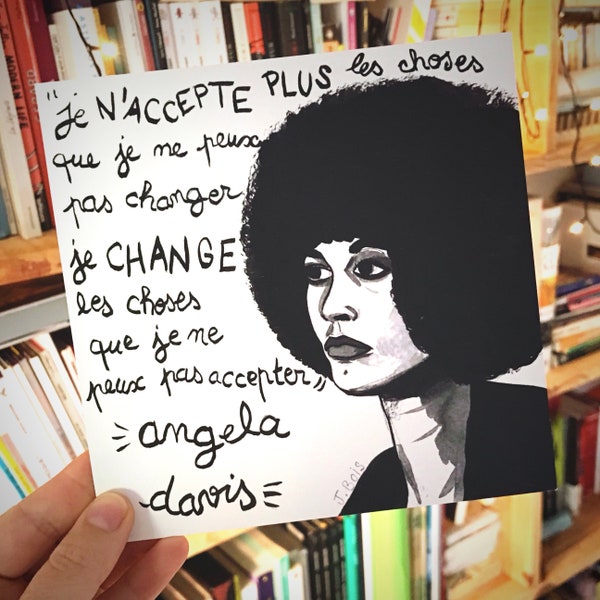 "je N'ACCEPTE PLUS les choses
que je ne peux
pas changer
je CHANGE
les choses
que je ne
peux pas accepter"
angela
davis
J. ROiS
MODERN LIFE